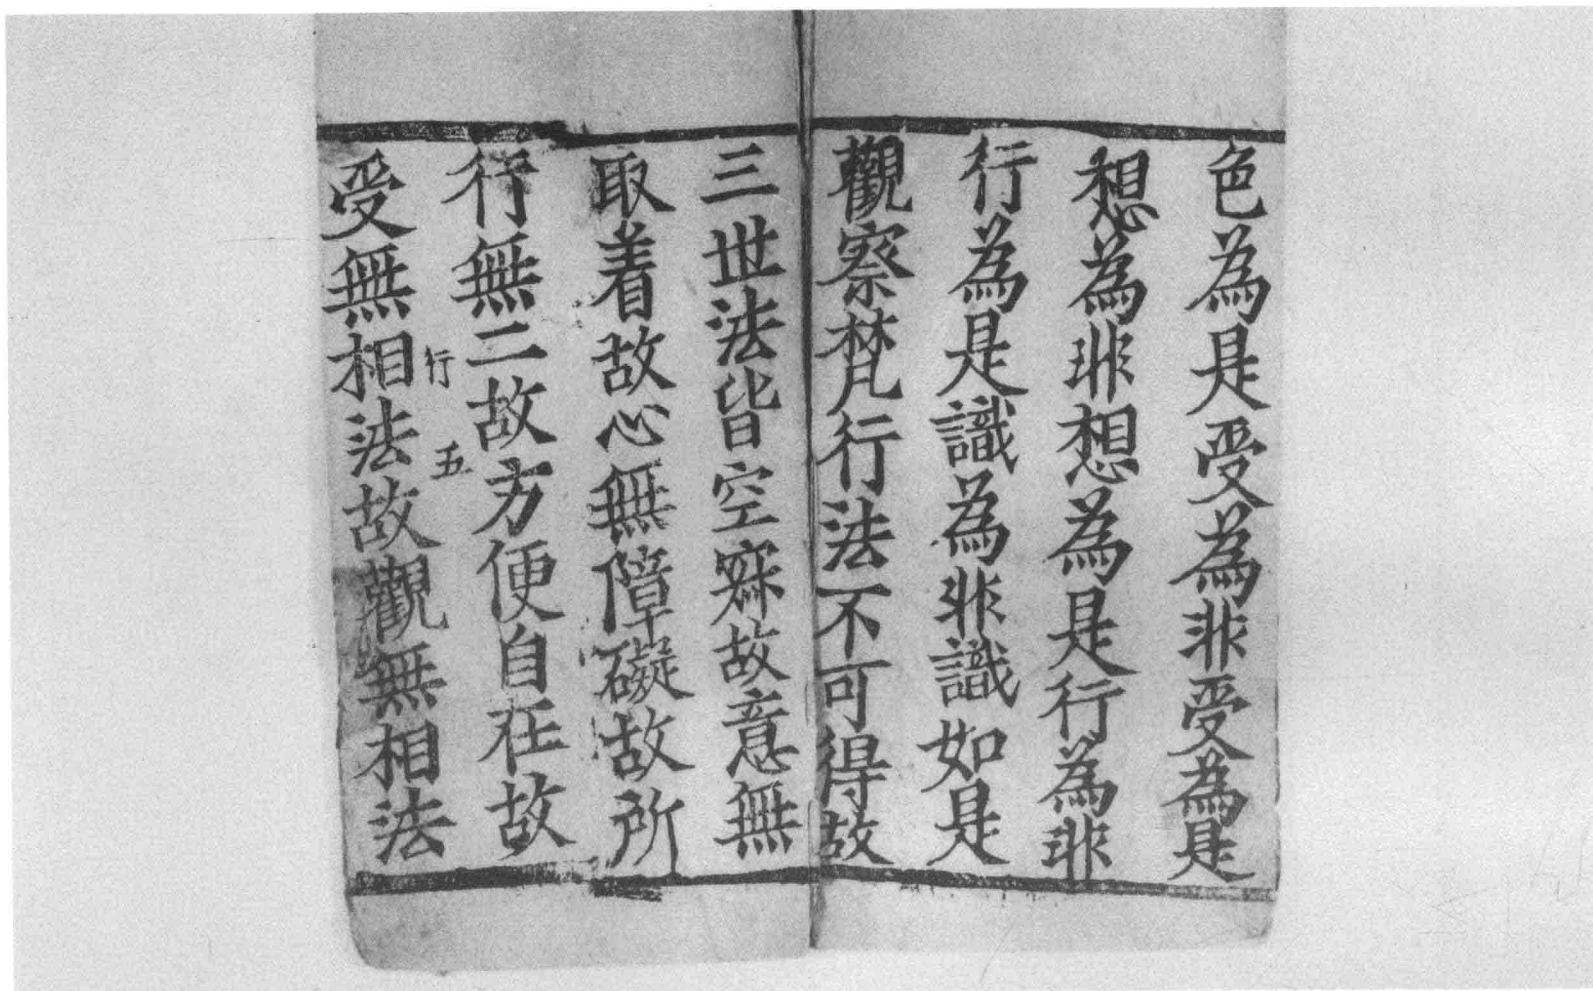 色為是受為非受為是
想為非想為是行為非
行為是識為非識如是
觀察梵行法不可得故
三世法皆空寂故意無
取着故心無障礙故所
行無二故方便自在故
行 五
受無相法故觀無相法